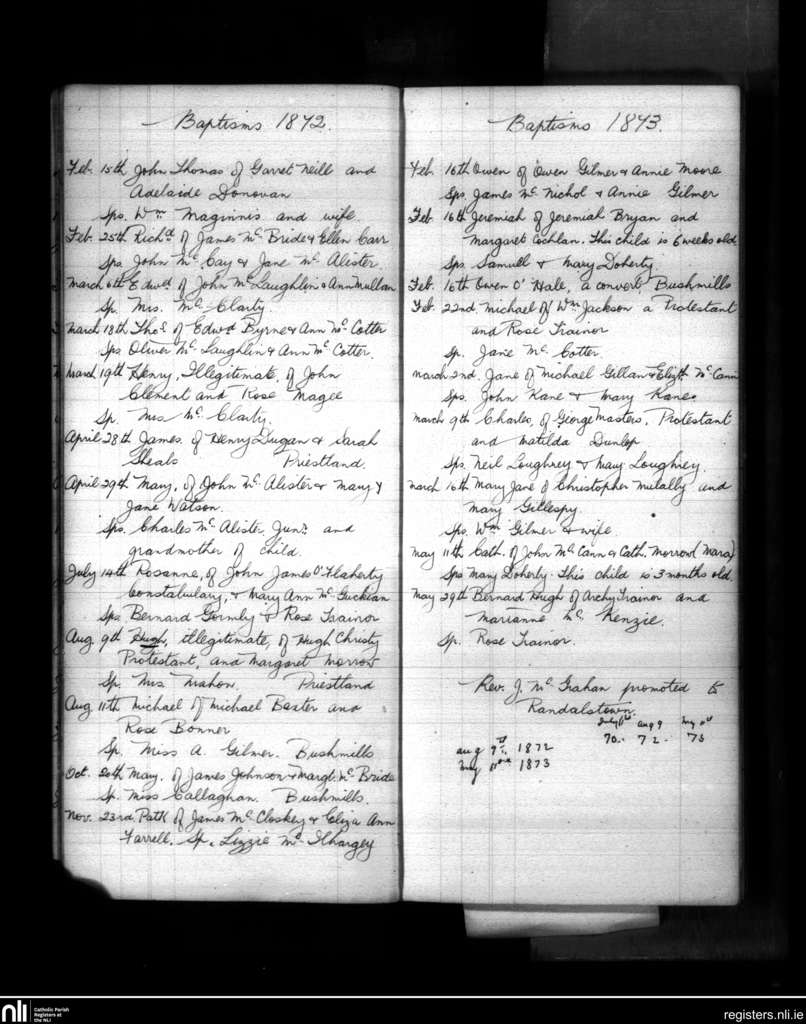 Baptisms 1872.
Feb. 15th John Thomas of Garret Neill and
Adelaide Donovan
Sps. Wm Maginnis and wife.
Feb. 25th Richd of James Mc Bride & Ellen Carr
Sps John Mc Cay & Jane Mc Alister
March 6th Edwd of John Mc Laughlin & Ann Mullan
Sp. Mrs. Mc Clarty.
March 18th Thos of Edwd Byrne & Ann Mc Cotter
Sps Oliver Mc Laughlin & Ann Mc Cotter.
March 19th Henry, Illegitimate, of John
Clement and Rose Magee
Sp. Mrs Mc Clarty.
April 28th James, of Henry Dugan & Sarah
Sheals Priestland.
April 29th Mary, of John Mc Alister & Mary &
Jane Watson.
Sps. Charles Mc Alister, Junr. and
grandmother of child.
July 14th Rosanne, of John James O'Flaherty
Constabulary, & Mary Ann Mc Guckian
Sps. Bernard Gormly & Rose Trainor
Aug. 9th Hugh, illegitimate, of Hugh Christy
Protestant, and Margaret Morrow
Sp. Mrs. Mahon. Priestland
Aug 11th Michael of Michael Baxter and
Rose Bonner
Sp. Miss A. Gilmer. Bushmills
Oct. 20th Mary, of James Johnson & Margt. Mc Bride
Sp. Miss Callaghan. Bushmills.
Nov. 23rd Patk of James Mc Closkey & Eliza Ann
Farrell. Sp. Lizzie Mc Ilhargey
Baptisms 1873.
Feb. 16th Owen of Owen Gilmer & Annie Moore
Sps James Mc Nichol & Annie Gilmer
Feb. 16th Jeremiah of Jeremiah Bryan and
Margaret Cochlan. This child is 6 weeks old
Sps. Samuel & Mary Doherty.
Feb. 16th Owen O' Hale, a convert, Bushmills
Feb. 22nd Michael of Wm Jackson a Protestant
and Rose Trainor
Sp. Jane Mc Cotter
March 2nd. Jane of Michael Gillan & Elizth Mc Cann
Sps. John Kane & Mary Kane.
March 9th Charles, of George Masters, Protestant
and Matilda Dunlop
Sps. Neil Loughrey & Mary Loughrey.
March 16th Mary Jane of Christopher Mulally and
Mary Gillespy.
Sps. Wm Gilmer & wife.
May 11th Cath. of John Mc Cann & Cath. Morrow (Mara)
Sps Mary Doherty. This child is 3 months old.
May 29th Bernard Hugh of Archy Trainor and
Marianne Mc Kenzie.
Sp. Rose Trainor.
Rev. J. Mc Grahan promoted to
Randalstown.
Aug 9 May 11th
70. 72. 73
Aug 9th 1872
May 11th 1873
nli Catholic Parish
Registers at
the NLI
registers.nli.ie